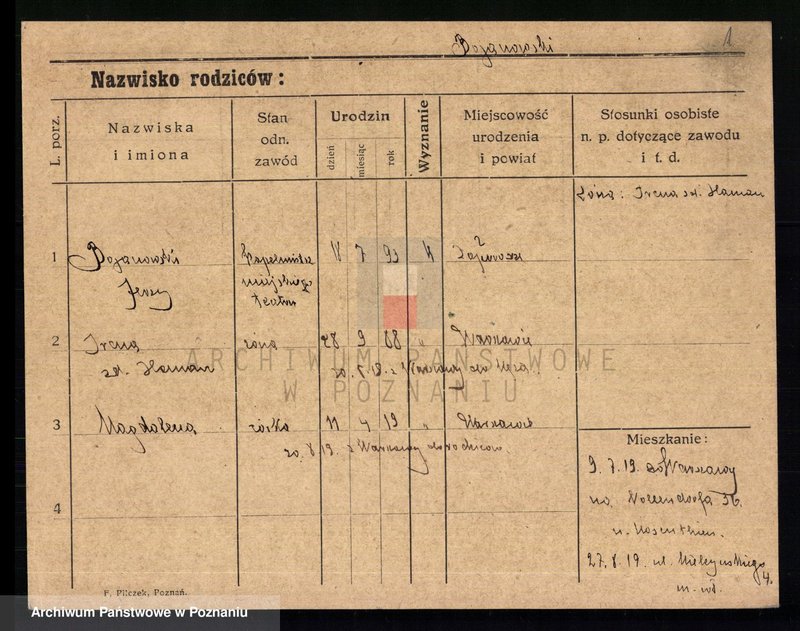 Bojanowski
1
Nazwisko rodziców:
L. porz.
Nazwiska
i imiona
Stan
odn.
zawód
Urodzin
dzień
miesiąc
rok
Wyznanie
Miejscowość
urodzenia
i powiat
Stosunki osobiste
n. p. dotyczące zawodu
i t. d.
żona: Irena zd. Haman
1
Bojanowski
Jerzy
Kapelmistrz
miejskiego
teatru
18 7 93 k
2
Irena
zd. Haman
żona
28 9 88 "
Warszawie
z Warszawy do męża.
3
Magdalena
córka
11 4 19 "
Warszawie
20. 8 19. z Warszawy do rodziców.
4
Mieszkanie:
9. 7. 19. z Warszawy
na
27. 8. 19 ul. Mielżyńskiego
4.
F. Pilczek, Poznań.
ARCHIWUM PAŃSTWOWE
W POZNANIU
Archiwum Państwowe w Poznaniu